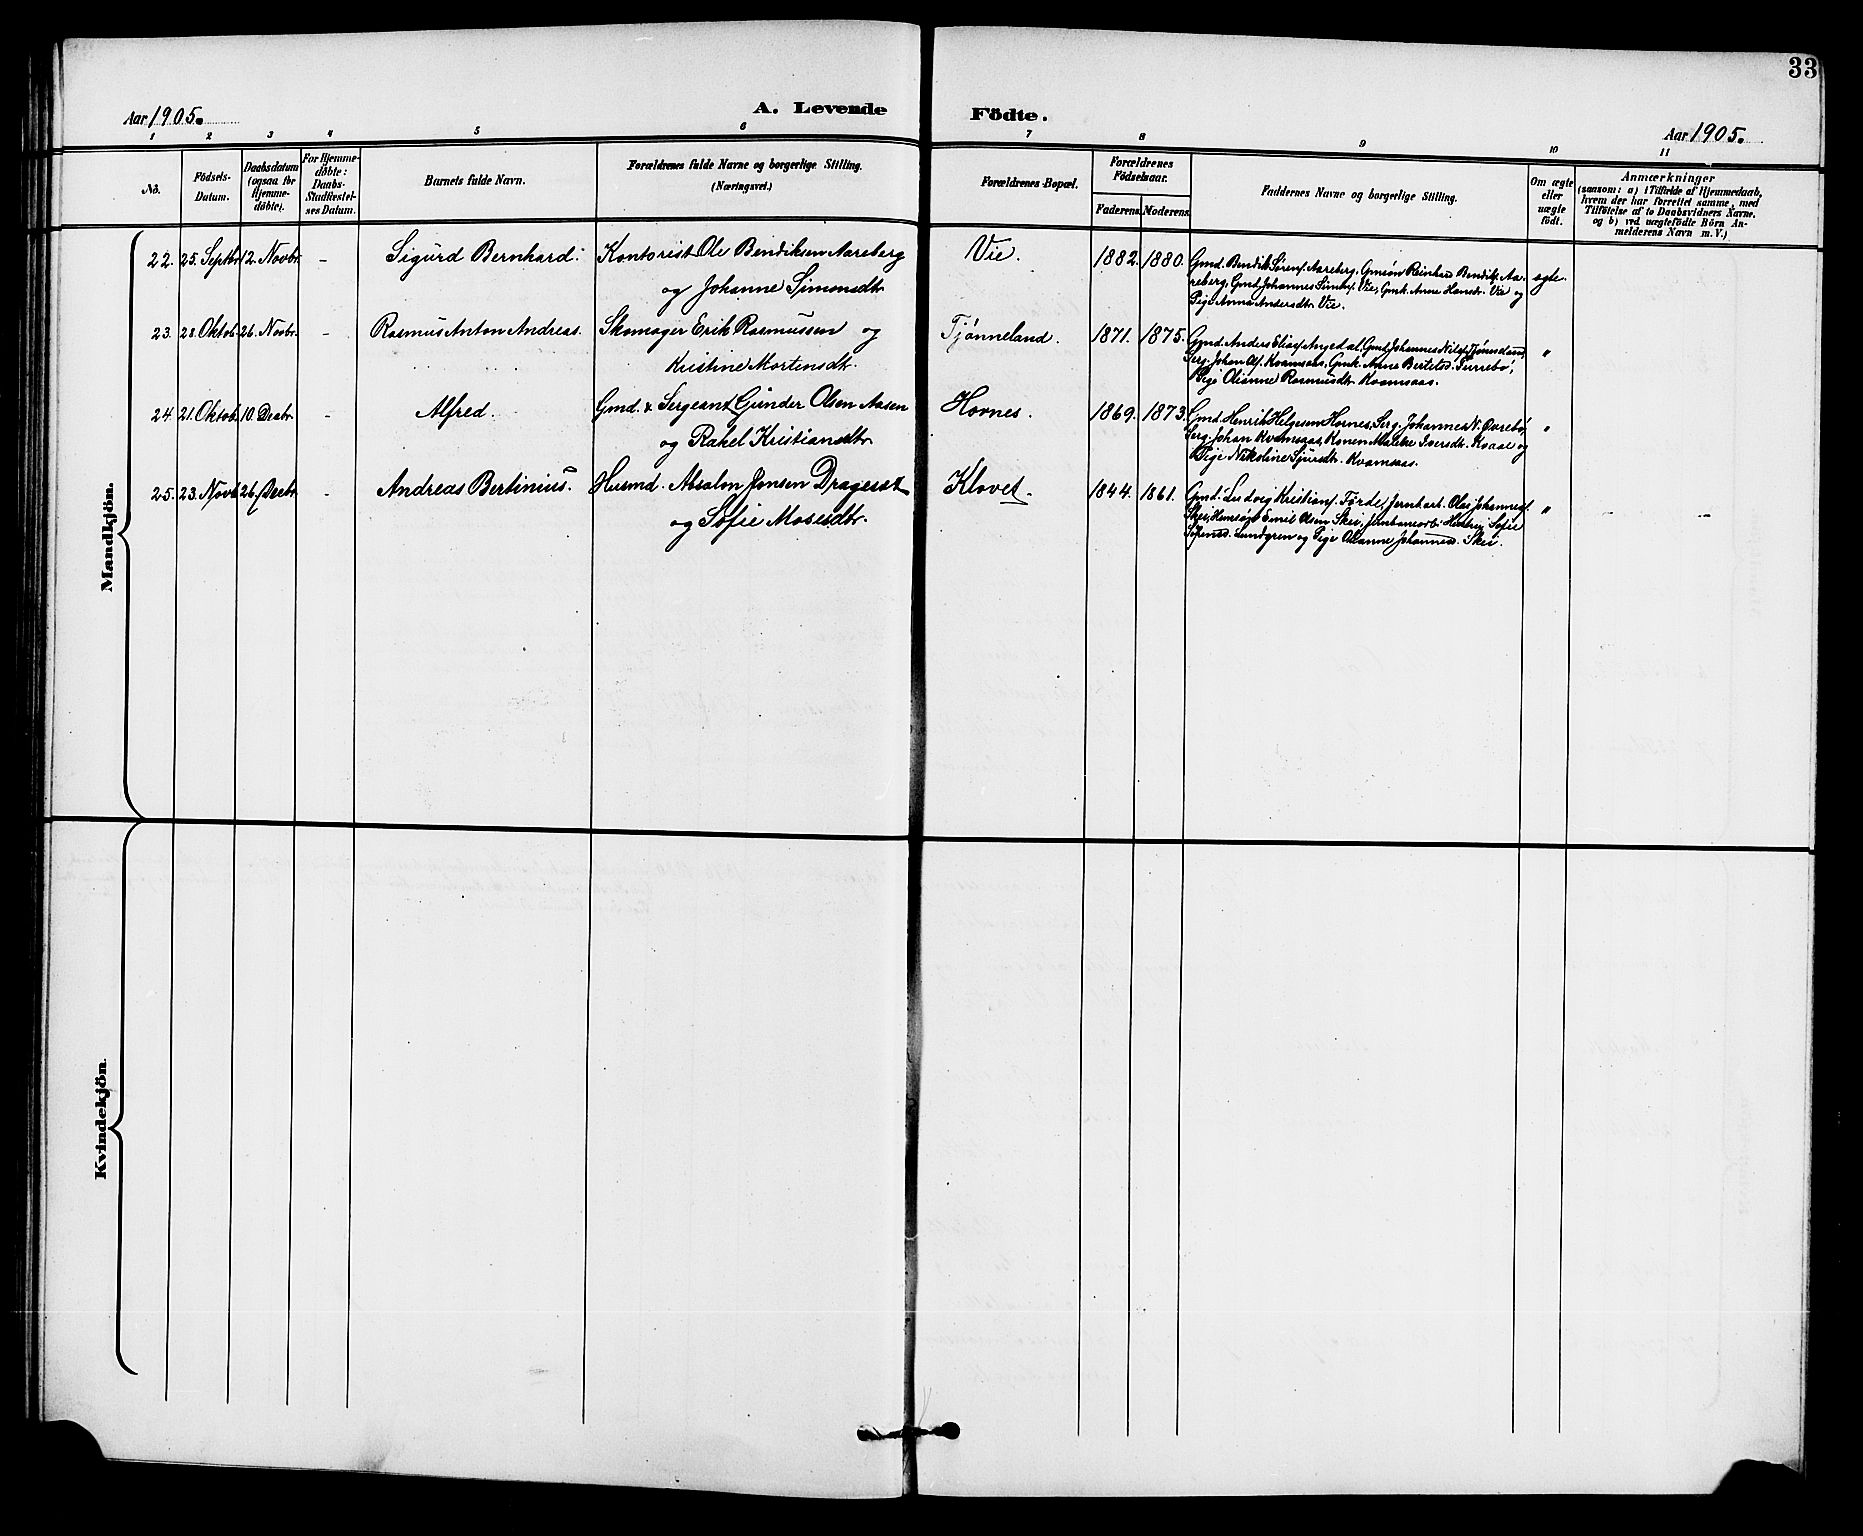 33
Aar 1905. A. Levende Födte. Aar 1905.
1 2 3 4 5 6 7 8 9 10 11
No. Födsels-Datum. Daabsdatum (ogsaa for Hjemme-döbte). For Hjemme-döbte: Daabs-Stadfæstel-ses Datum. Barnets fulde Navn. Forældrenes fulde Navne og borgerlige Stilling. (Næringsvei.) Forældrenes Bopæl. Forældrenes Födselsaar. Faderens. Moderens. Faddernes Navne og borgerlige Stilling. Om ægte eller uægte födt. Anmærkninger (saasom: a) i Tilfælde af Hjemmedaab, hvem der har forrettet samme, med Tilföielse af to Daabsvidners Navne, og b) ved uægtefödte Börn An-melderens Navn m. V.)
Mandkjön.
22. 25. Septbr. 12. Novbr. - Sigurd Bernhard. Kontorist Ole Bendiksen Aareberg Vie. 1882. 1880. Gmd. Bendik Sørens. Aareberg, Gmsøn Reinhard Bendiks. Aa- ægte.
og Johanne Simonsdtr reberg, Gmd. Johannes Simons. Vie, Gmk. Anne Hansdr. Vie og
Pige Anna Andersdtr. Vie.
23. 28. Oktob. 26. Novbr. - Rasmus Anton Andreas. Skomager Erik Rasmussen og Tjønneland. 1871. 1875. Gmd. Anders Elias. Angedal, Gmd. Johannes Nils. "
Kristine Mortensdtr. Serg. Johan Ols. Kvamsaas, Gmk. Anna Bertelsd.
Pige Olianne Rasmusdtr. Kvamsaas.
24 21. Oktob. 10. Decbr. - Alfred. Gmd. & Sergeant Gunder Olsen Aasen Hornes. 1869. 1873. Gmd. Henrik Helgesen Hornes, Serg. Johannes N. Øvrebø, "
og Rakel Kristiansdtr Serg. Johan Kvamsaas, Konen Iversdtr. Kvaal og
Pige Nikoline Sjursdtr. Kvamsaas.
25. 23. Novb. 26. Decbr. - Andreas Bertinius. Husmd. Absalon Jonsen Drageset Klovet. 1844. 1861. Gmd. Ludvig Kristians. Førde, Jernbarb. Olai Johannes. " - -
og Sofie Mosesdtr. Skei, Emil Olsen Skei, Sofie
Lundgren og Pige Olianne Johannesd. Skei.
Kvindekjön.